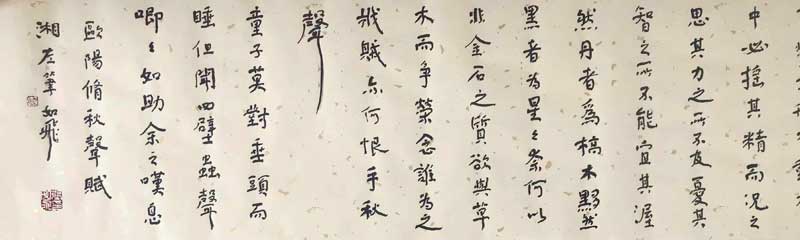 中必搖其精而況之
思其力之所不及憂其
智之所不能宜其渥
然丹者爲槁木黟然
黑者为星々奈何以
非金石之質欲與草
木而爭榮念誰为之
戕賊亦何恨乎秋
聲
童子莫對垂頭而
睡但聞四壁蟲聲
唧々如助余之嘆息
歐陽脩秋聲賦
湘左筆如飛